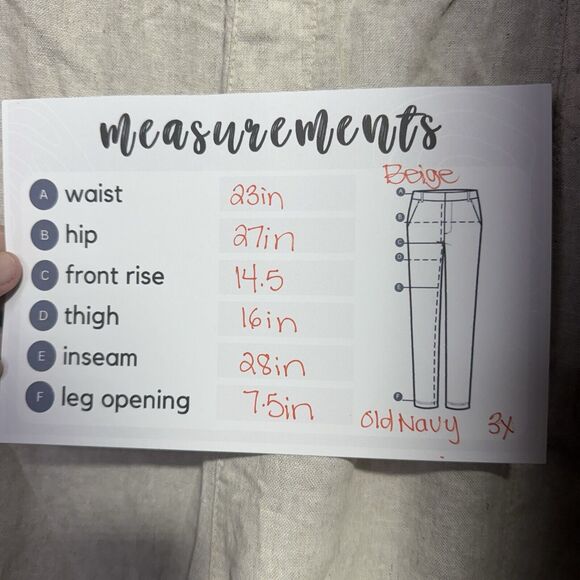 measurements
Beige
A waist 23in
B hip 27in
C front rise 14.5
D thigh 16in
E inseam 28in
F leg opening 7.5in
A
B
C
D
E
F
Old Navy 3x